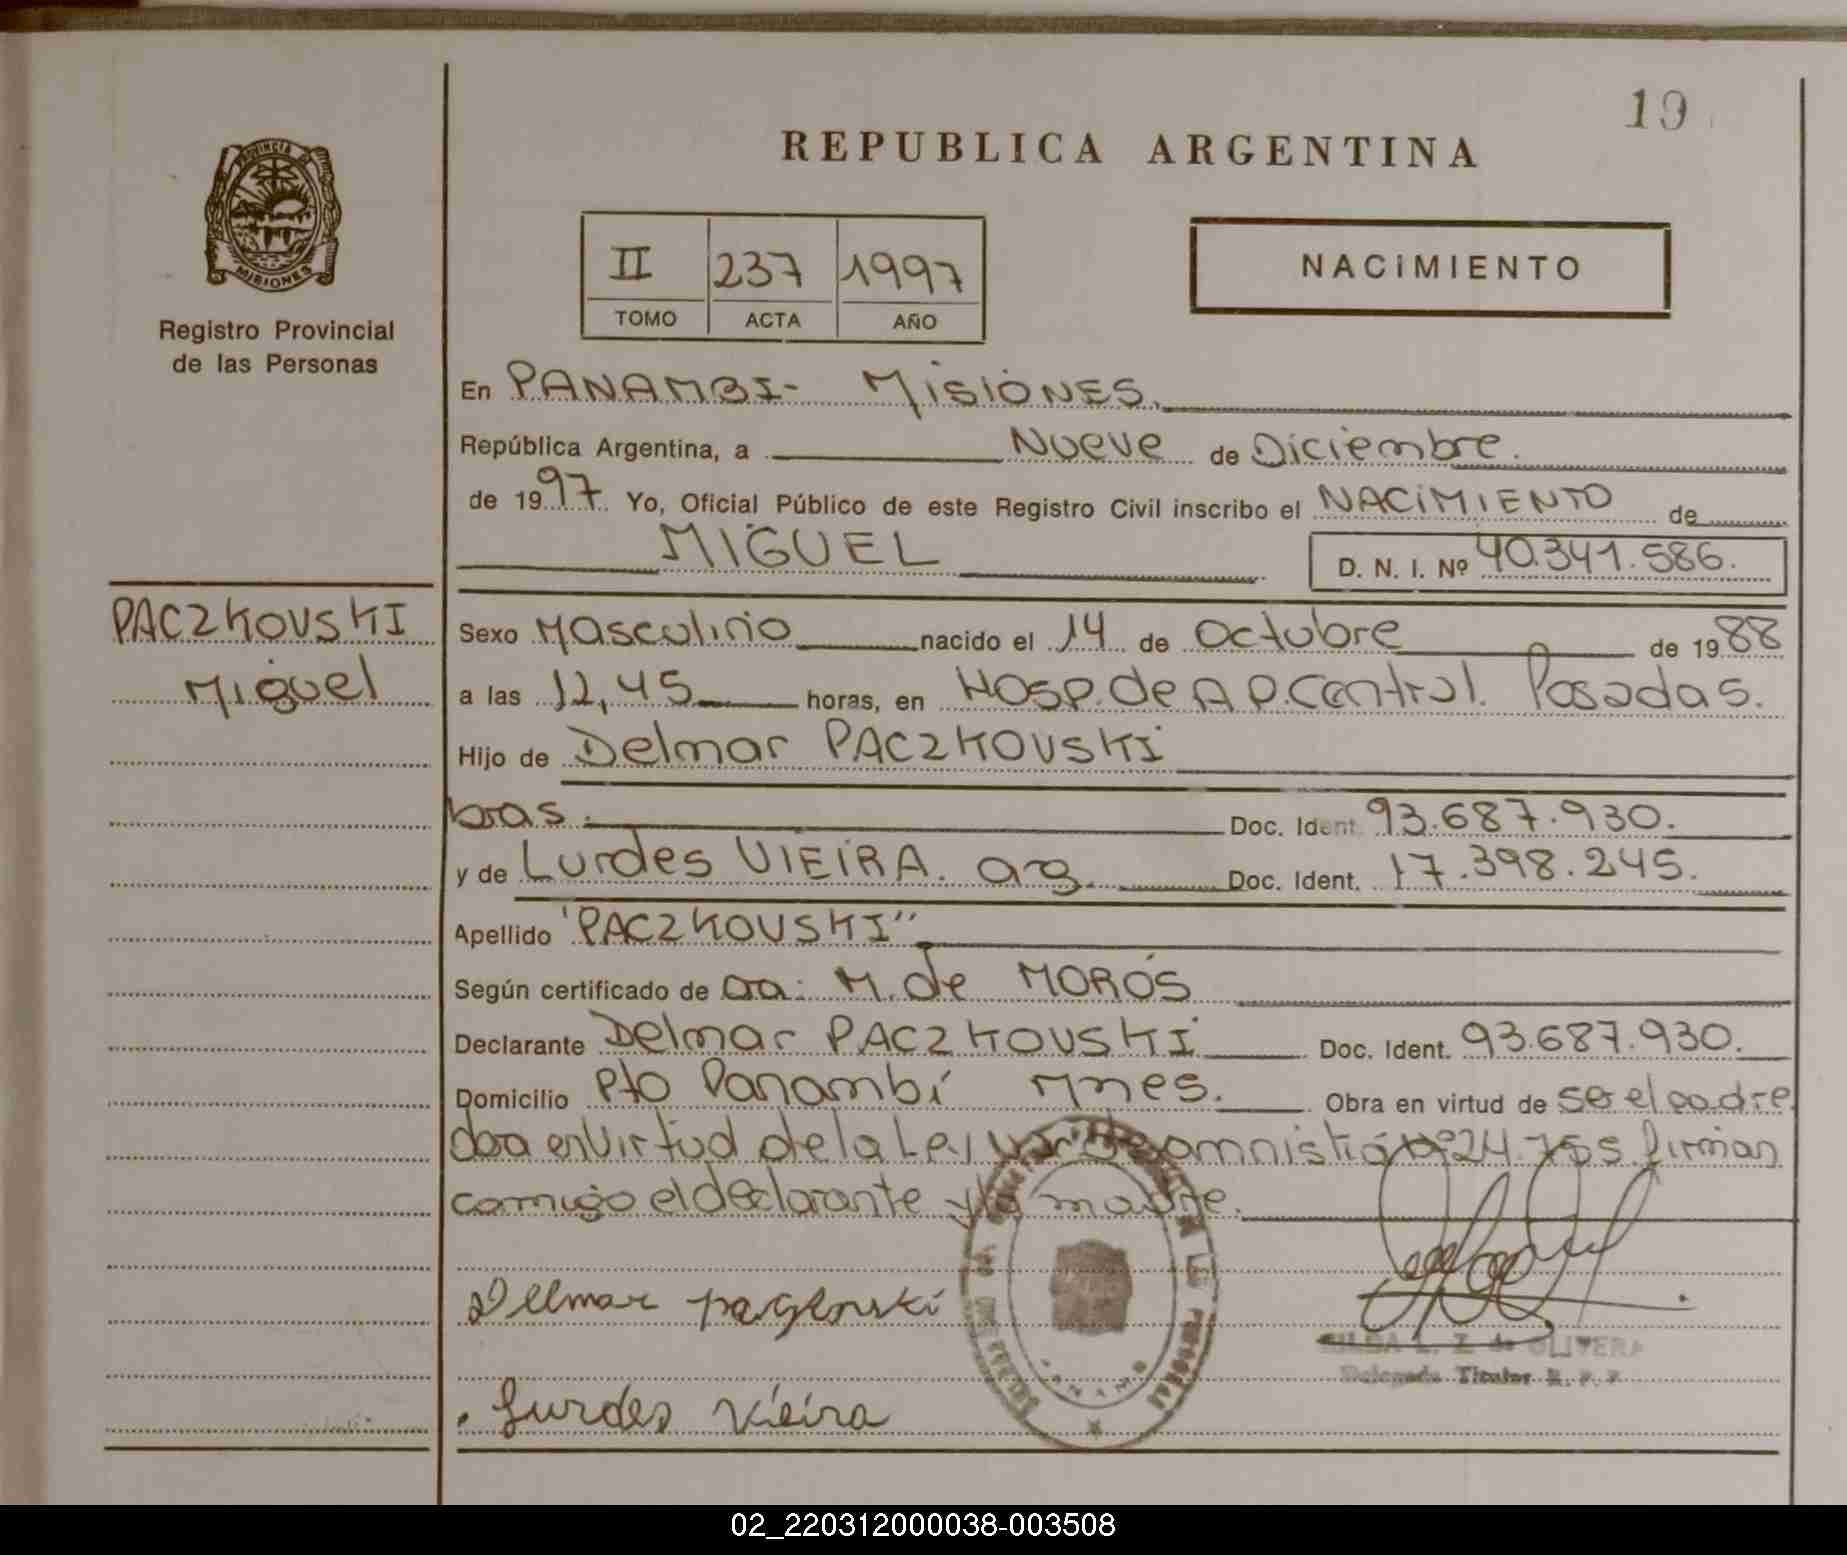 19
REPUBLICA ARGENTINA
PROVINCIA DE
MISIONES
Registro Provincial
de las Personas
II 237 1997
TOMO ACTA AÑO
NACiMIENTO
En PANAMBI- MisiONES.
República Argentina, a Nueve de Diciembre.
de 1997. Yo, Oficial Público de este Registro Civil inscribo el NACiMIENTO de
MIGUEL
D. N. I. Nº 40.341.586.
PACZKOVSKI
Miguel
Sexo Masculino nacido el 14 de Octubre de 1988
a las 12,45 horas, en Hosp. de A P. Central. Posadas.
Hijo de Delmar PACZKOVSKI
bras. Doc. Ident. 93.687.930.
y de Lurdes VIEIRA. arg. Doc. Ident. 17.398.245.
Apellido "PACZKOVSKI"
Según certificado de Dra: M. de MORÓS
Declarante Delmar PACZKOVSKI Doc. Ident. 93.687.930.
Domicilio Pto Panambí Mnes. Obra en virtud de ser el padre
obra en virtud de la Ley de amnistía Nº 24.755 firman
comigo el declarante y la madre.
Delmar paczkovski
Lurdes Vieira
L. Z. de OLIVERA
Delegada Titular R. P. P
PANAMBI
02_220312000038-003508